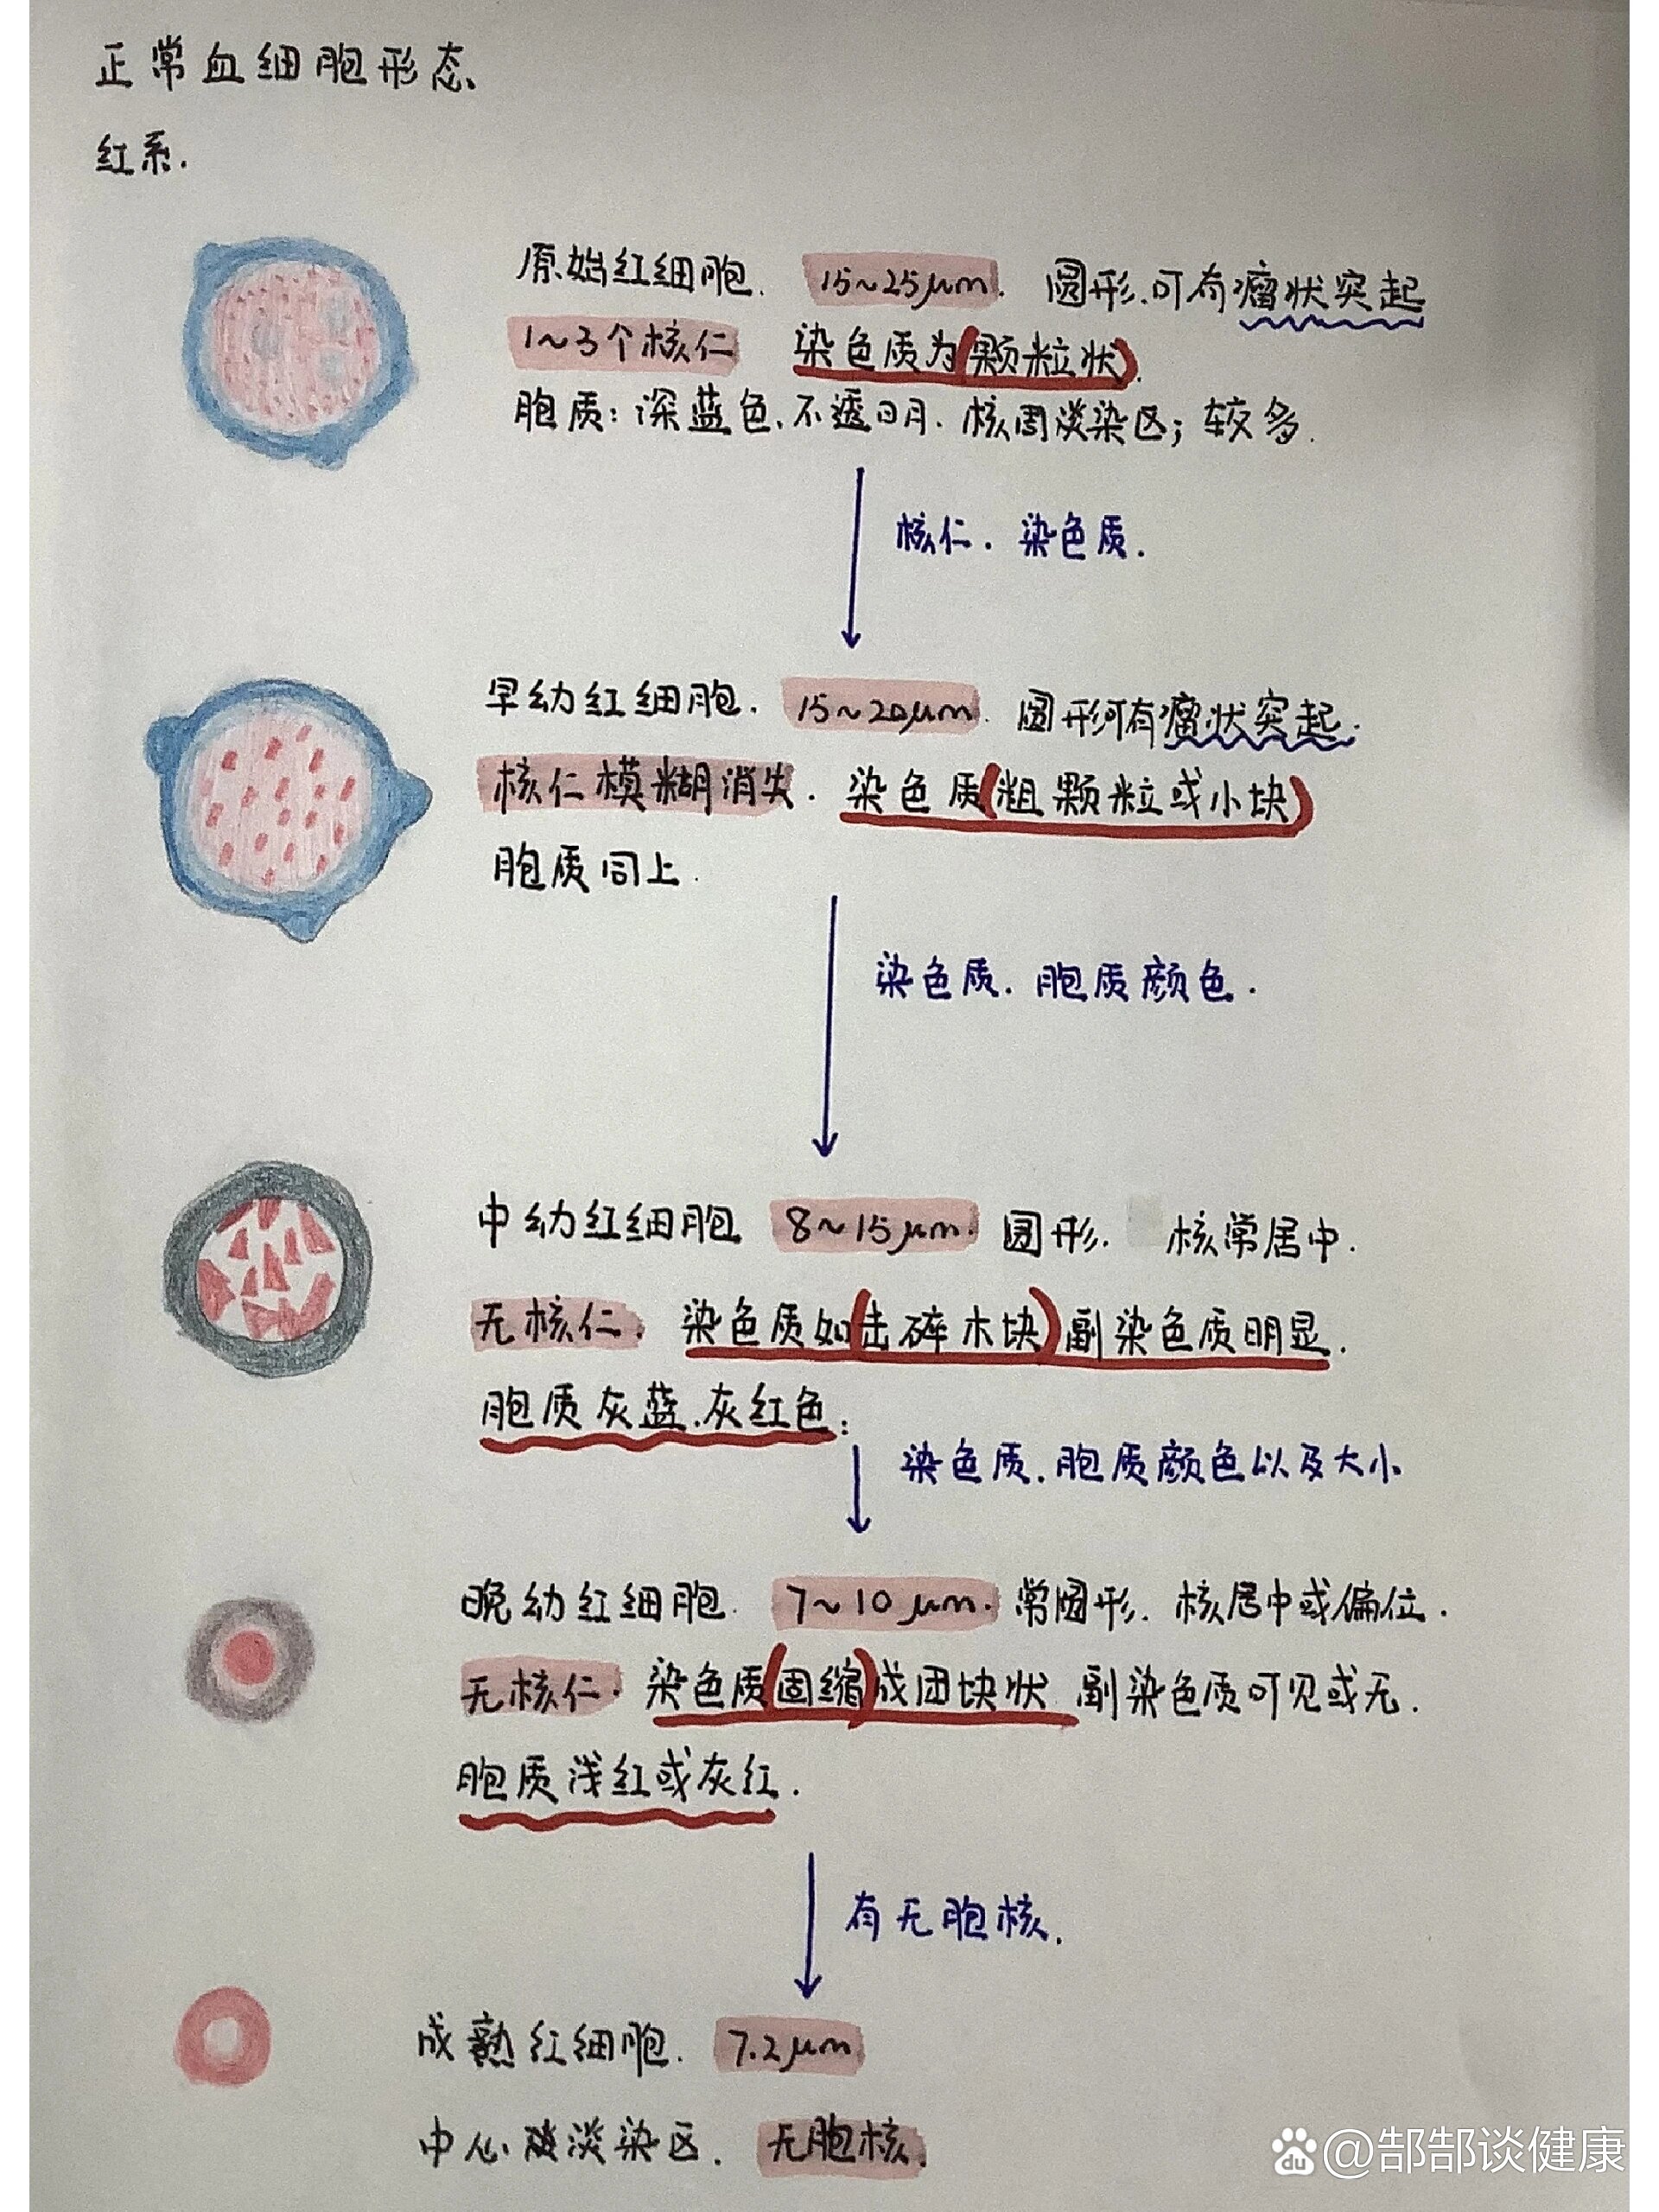 正常血细胞形态
红系.
原始红细胞. 15~25μm. 圆形.可有瘤状突起
1~3个核仁 染色质为(颗粒状).
胞质:深蓝色,不透明.核周淡染区;较多.
核仁.染色质.
早幼红细胞. 15~20μm. 圆形可有瘤状突起.
核仁模糊消失. 染色质(粗颗粒或小块)
胞质同上.
染色质.胞质颜色.
中幼红细胞 8~15μm. 圆形. 核常居中.
无核仁. 染色质如(击碎木块)副染色质明显.
胞质灰蓝.灰红色;
染色质.胞质颜色以及大小
晚幼红细胞. 7~10μm. 常圆形.核居中或偏位.
无核仁. 染色质(固缩)成团块状 副染色质可见或无.
胞质浅红或灰红.
有无胞核.
成熟红细胞. 7.2μm
中心淡染区. 无胞核.
du @郜郜谈健康